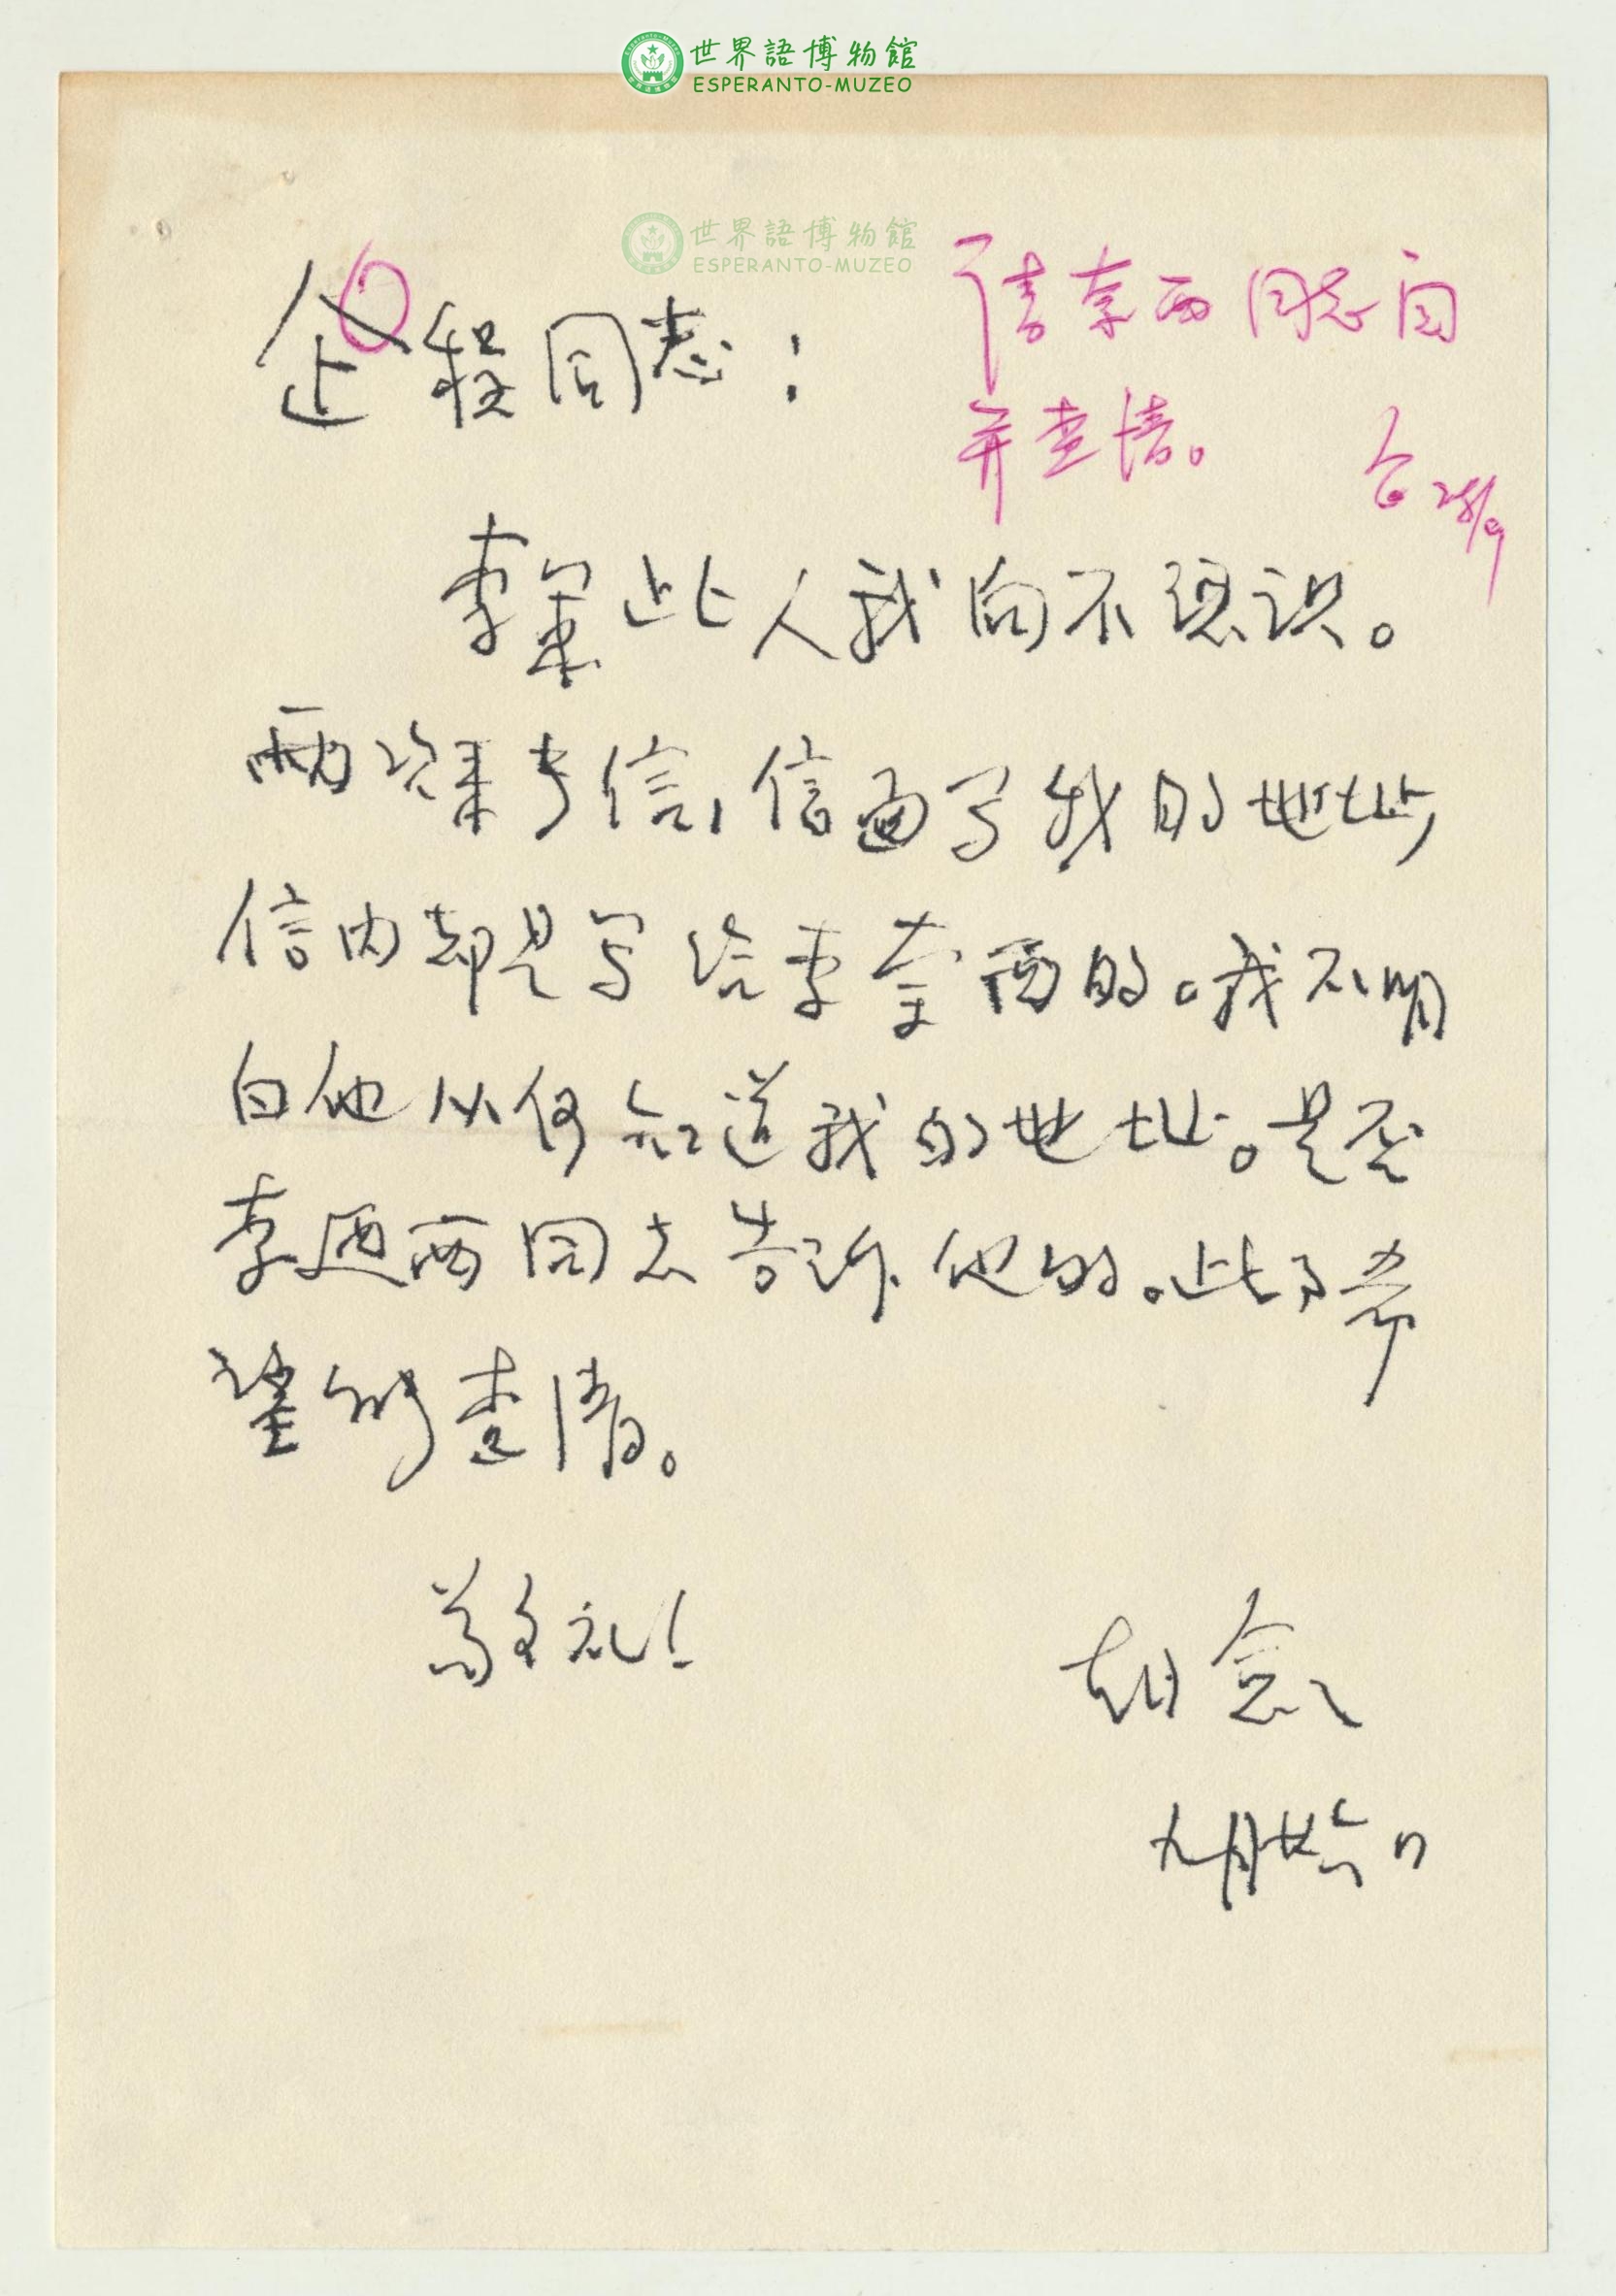 世界語博物館
ESPERANTO-MUZEO
世界語博物館
ESPERANTO-MUZEO
请李西同志阅
并查清。
28/9
企程同志：
李 此人我向不认识。
两次来信，信面写我的地址，
信内却是写给李奎西的。我不明
白他从何知道我的地址。是否
李 西同志告诉他的。此事希
望能查清。
敬礼！
九月廿六日